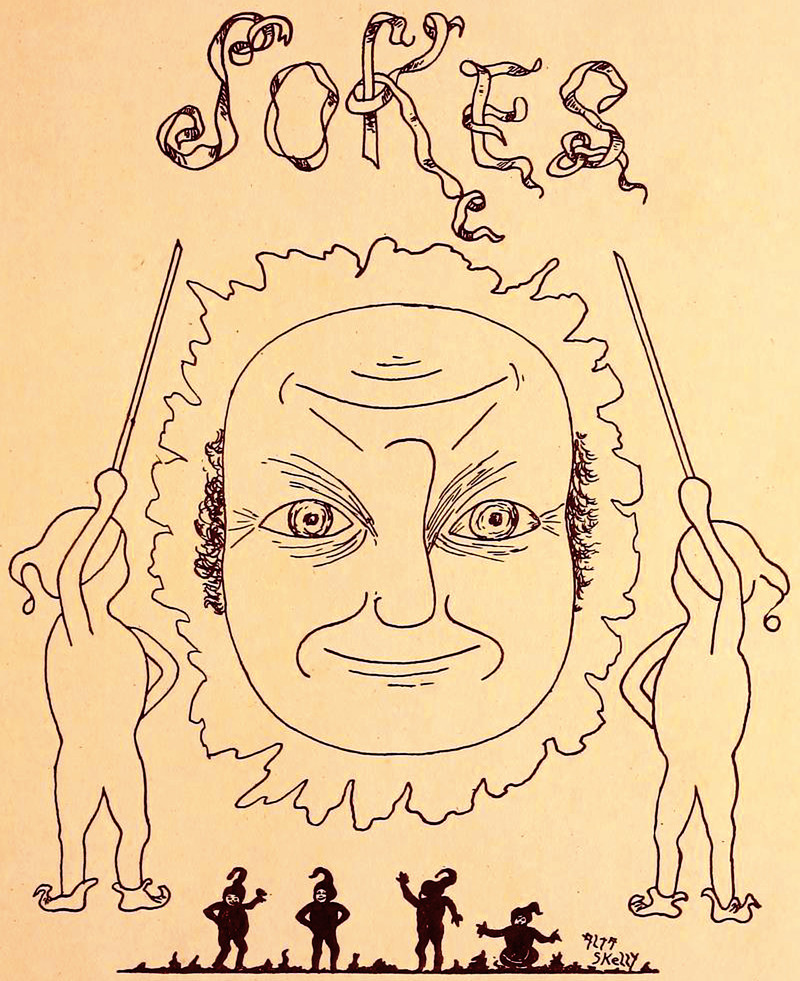 JOKES
Alta
Skelly